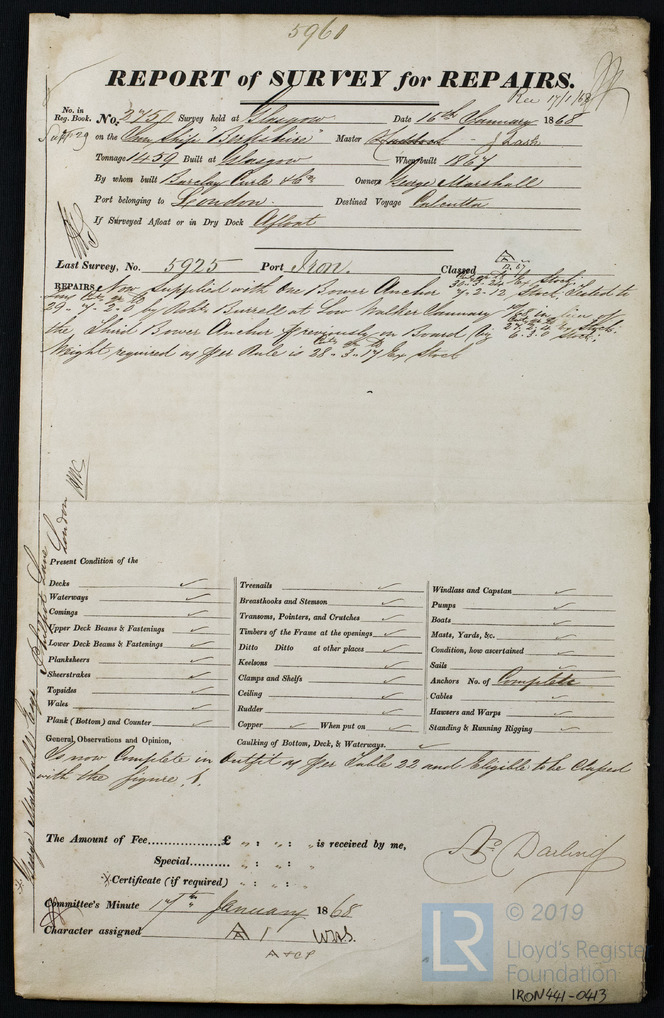 5960
REPORT of SURVEY for REPAIRS.
Rec 17/1/68
No. in Reg. Book. No. 2750 Survey held at Glasgow Date 16th January 1868
Supt 29 on the Iron Ship "Berkshire" Master
Tonnage 1459 Built at Glasgow When built 1867
By whom built Barclay Curle & Co Owners George Marshall
Port belonging to London. Destined Voyage Calcutta
If Surveyed Afloat or in Dry Dock Afloat
Last Survey, No. 5925 Port Iron. Classed
REPAIRS Now Supplied with One Bower Anchor 30-3-24 Ex Stock 7-2-12 Stock, Tested to
29-7-2-0 by Robt Burrell at Low Walker January 1868 in lieu of
the Third Bower Anchor previously on Board 6-3-0 Stock;
Weight required as per Rule is 28-3-17 Ex Stock
Present Condition of the
Decks
Waterways
Comings
Upper Deck Beams & Fastenings
Lower Deck Beams & Fastenings
Planksheers
Sheerstrakes
Topsides
Wales
Plank (Bottom) and Counter
Treenails
Breasthooks and Stemson
Transoms, Pointers, and Crutches
Timbers of the Frame at the openings
Ditto Ditto at other places
Keelsons
Clamps and Shelfs
Ceiling
Rudder
Copper When put on
Windlass and Capstan
Pumps
Boats
Masts, Yards, &c.
Condition, how ascertained
Sails
Anchors No. of Complete
Cables
Hawsers and Warps
Standing & Running Rigging
General, Observations and Opinion, Caulking of Bottom, Deck, & Waterways.
Is now Complete in Outfit as per Table 22 and Eligible to be Classed
with the figure 1.
The Amount of Fee £ " : " : " is received by me,
Special " : " : "
Certificate (if required) " : " : "
Darling
Committee's Minute 17th January 1868
Character assigned A 1
A & CP
George Marshall Esqr
London
© 2019
LR
Lloyd's Register
Foundation
IRON441-0413